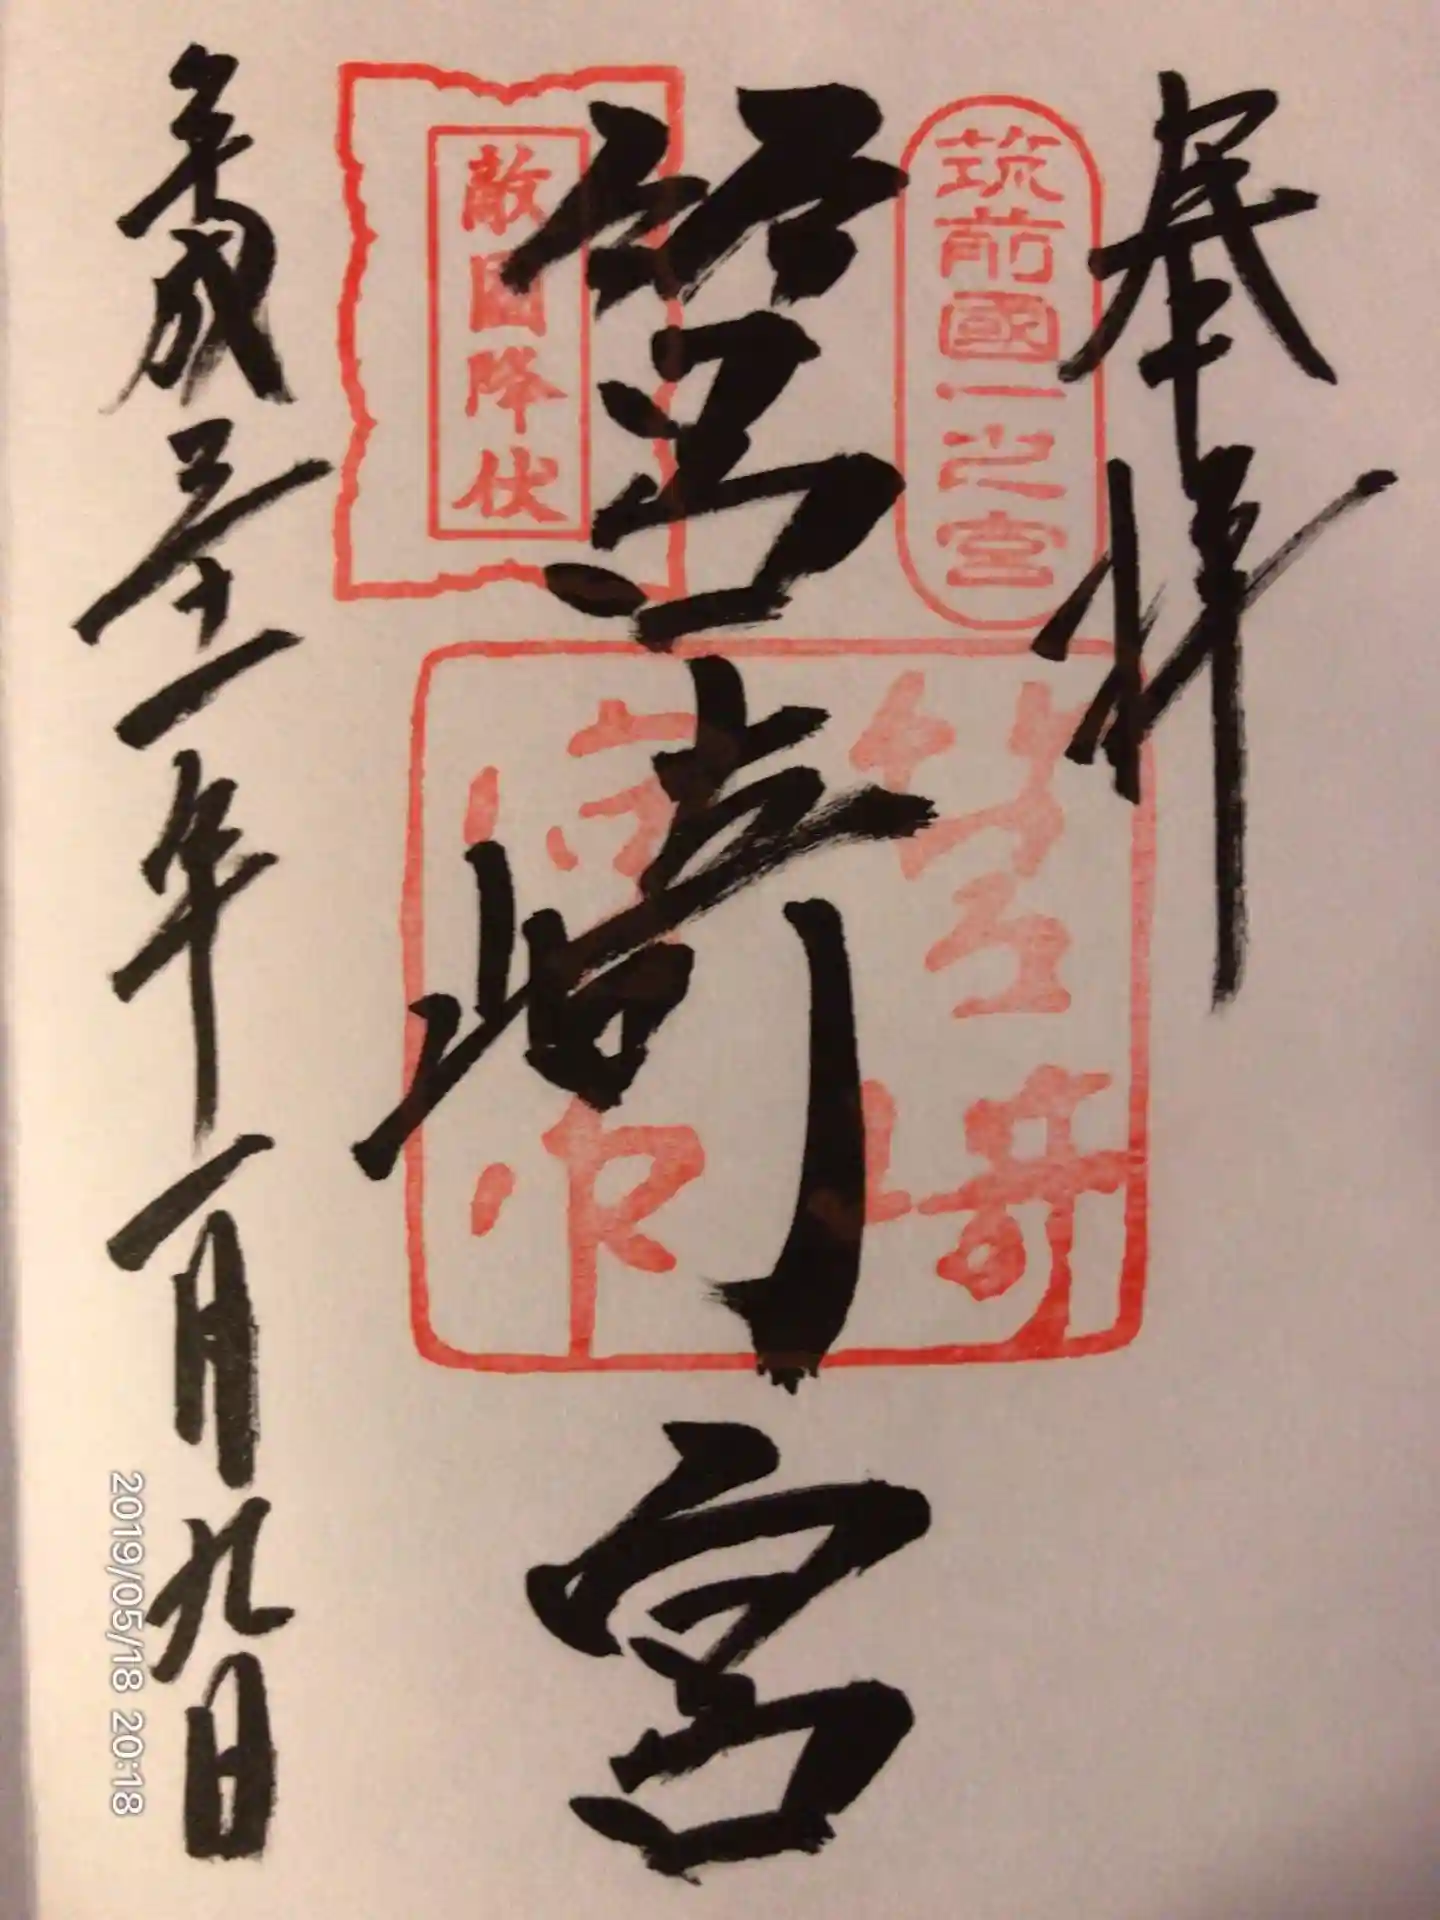 奉拝
筑前國一之宮
筥崎宮
筥崎
宮印
敵國降伏
平成三十一年一月九日
2019/05/18 20:18